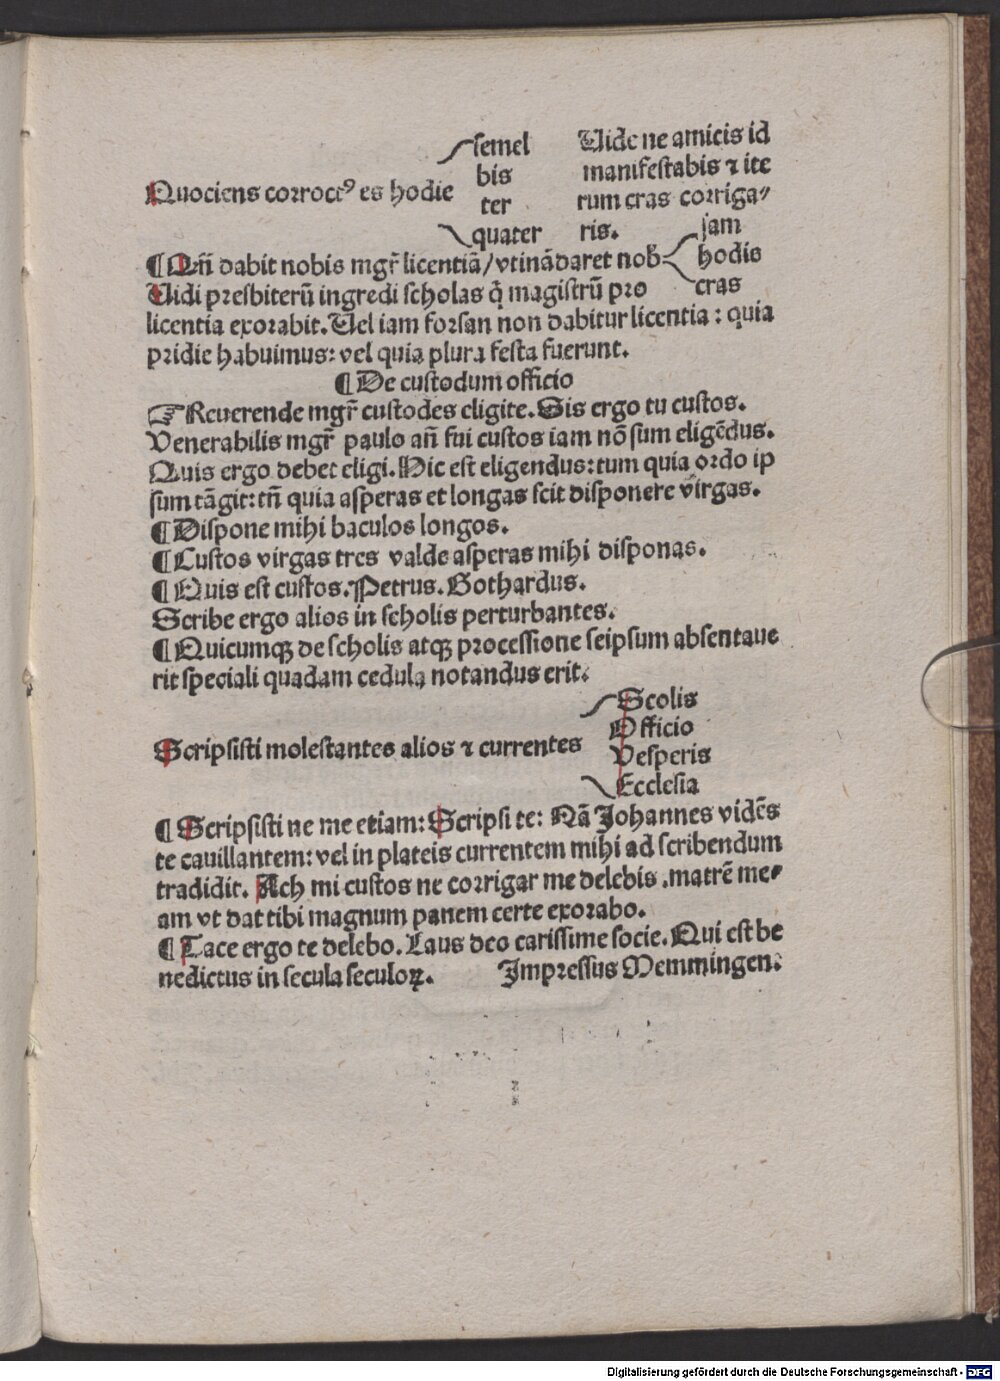 semel
bis
Quociens corroctꝰ es hodie
ter
quater
Uide ne amicis id
manifestabis ⁊ ite
rum cras corriga⸗
ris.
jam
¶ Qn̄ dabit nobis mgr̄ licentiā/vtinā daret nob̄ hodis
cras
Uidi presbiterū ingredi scholas q̄ magistrū pro
licentia exorabit. Uel iam forsan non dabitur licentia: quia
pridie habuimus: vel quia plura festa fuerunt.
¶ De custodum officio
☞ Reuerende mgr̄ custodes eligite. Sis ergo tu custos.
Venerabilis mgr̄ paulo an̄ fui custos iam nō sum eligēdus.
Quis ergo debet eligi. Hic est eligendus: tum quia ordo ip
sum tāgit: tn̄ quia asperas et longas scit disponere virgas.
¶ Dispone mihi baculos longos.
¶ Custos virgas tres valde asperas mihi disponas.
¶ Quis est custos. Petrus. Gothardus.
Scribe ergo alios in scholis perturbantes.
¶ Quicumqꝫ de scholis atqꝫ processione seipsum absentaue
rit speciali quadam cedula notandus erit.
Scolis
Officio
Scripsisti molestantes alios ⁊ currentes
Vesperis
Ecclesia
¶ Scripsisti ne me etiam: Scripsi te: Nā Johannes vidēs
te cauillantem: vel in plateis currentem mihi ad scribendum
tradidit. Ach mi custos ne corrigar me delebis .matrē me⸗
am vt dat tibi magnum panem certe exorabo.
¶ Tace ergo te delebo. Laus deo carissime socie. Qui est be
nedictus in secula seculoꝝ. Impressus Memmingen.
Digitalisierung gefördert durch die Deutsche Forschungsgemeinschaft - DFG